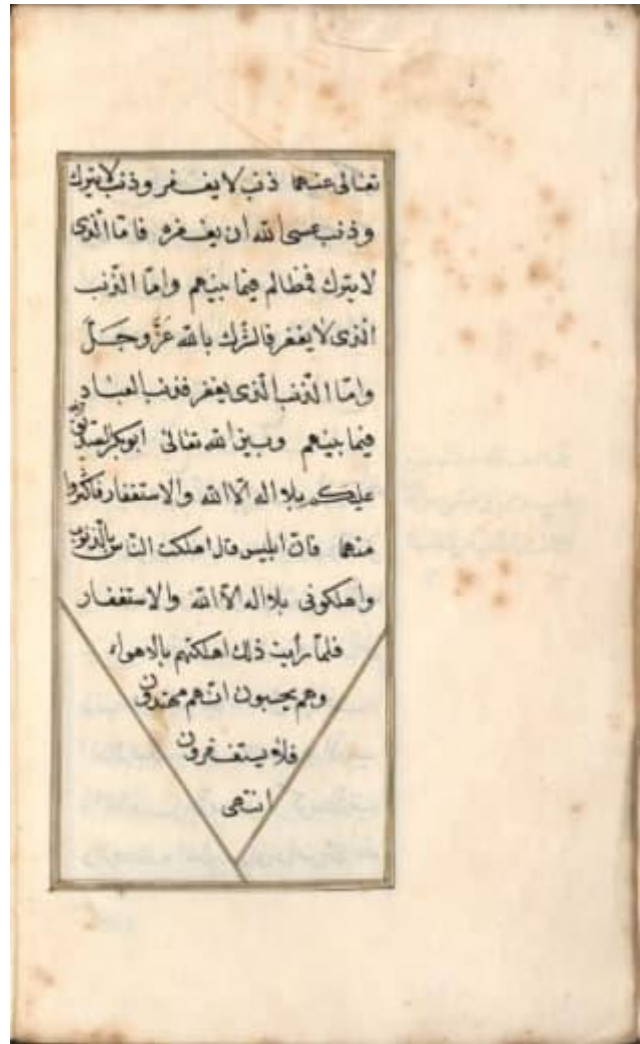 تعالى عنهما ذنب لا يغفر وذنب لا يترك
وذنب عسى الله ان يغفره فامّا الّذى
لا يترك فمظالم فيما بينهم وامّا الذّنب
الّذى لا يغفر فالشّرك بالله عَزَّ وجَلَّ
وامّا الذّنب الّذى يغفر فذنب العباد
فيما بينهم وبين الله تعالى ابو بكر الصّدّيق
عليكم بلا اله الّا الله والاستغفار فاكثروا
منهما فانّ ابليس قال اهلكت النّاس بالذّنوب
واهلكونى بلا اله الّا الله والاستغفار
فلمّا رأيت ذلك اهلكتهم بالاهواء
وهم يحسبون انّهم مهتدون
فلا يستغفرون
انتهى